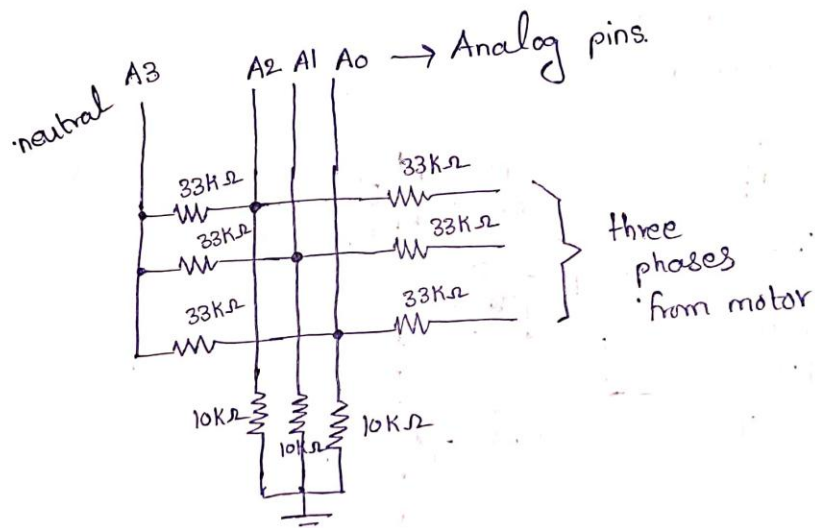 A3 A2 A1 A0 → Analog pins.
neutral
33KΩ 33KΩ
33KΩ 33KΩ
33KΩ 33KΩ
three
phases
from motor
10KΩ 10KΩ 10KΩ